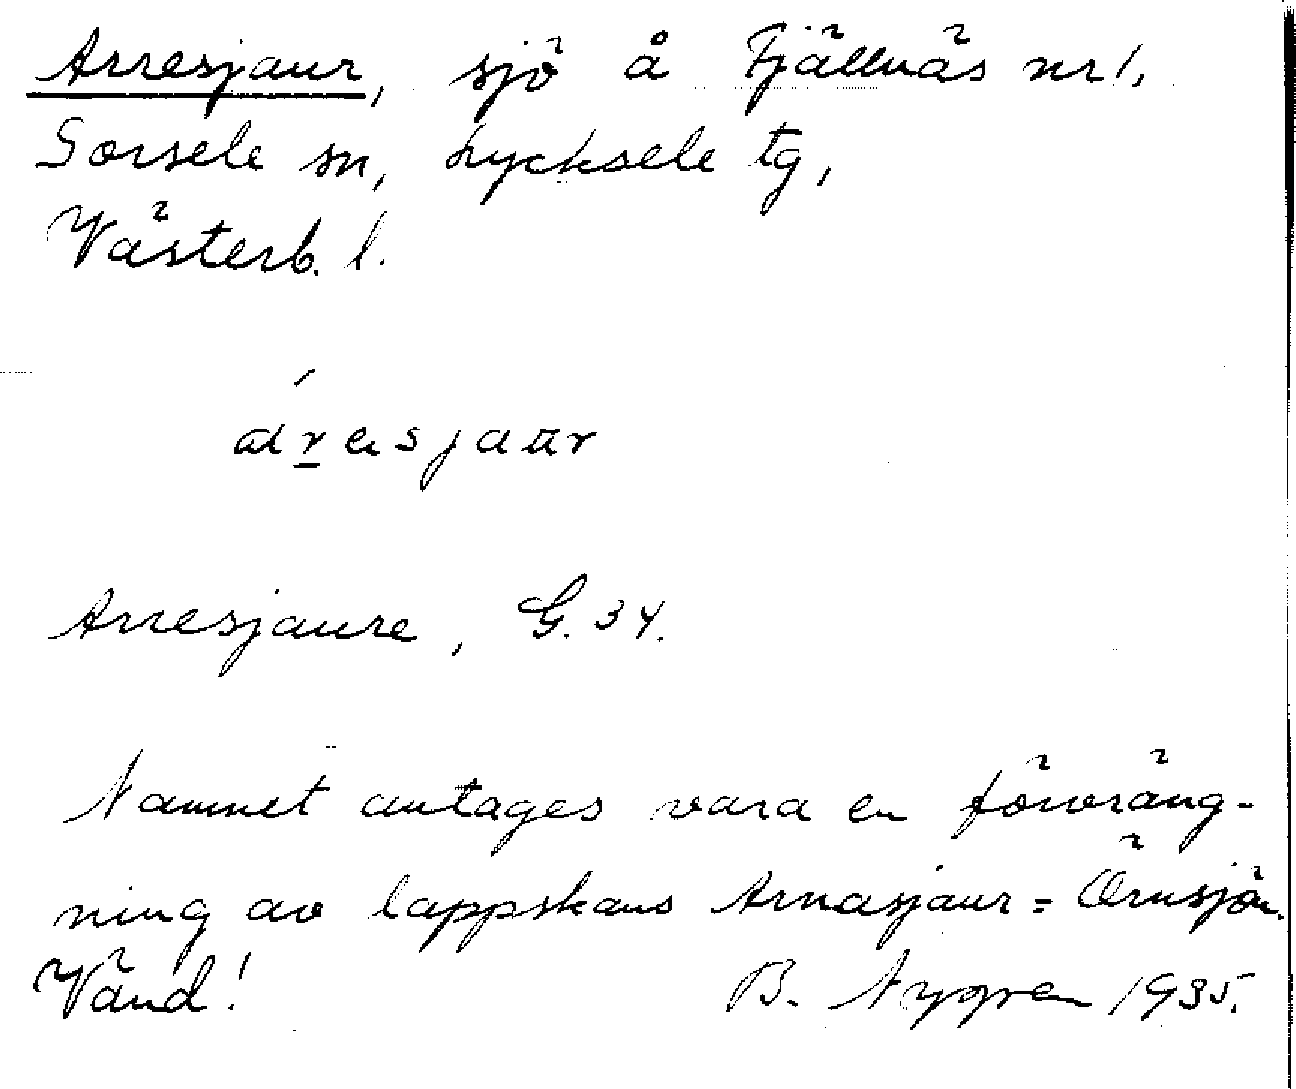 Arresjaur, sjö å Fjällnäs nr 1,
Sorsele sn, Lycksele tg,
Västerb. l.
Arresjaure, G. 34.
Namnet antages vara en förvräng-
ning av lappskans Arnasjaur = Örnsjön.
Vänd! B. Nygren 1935.